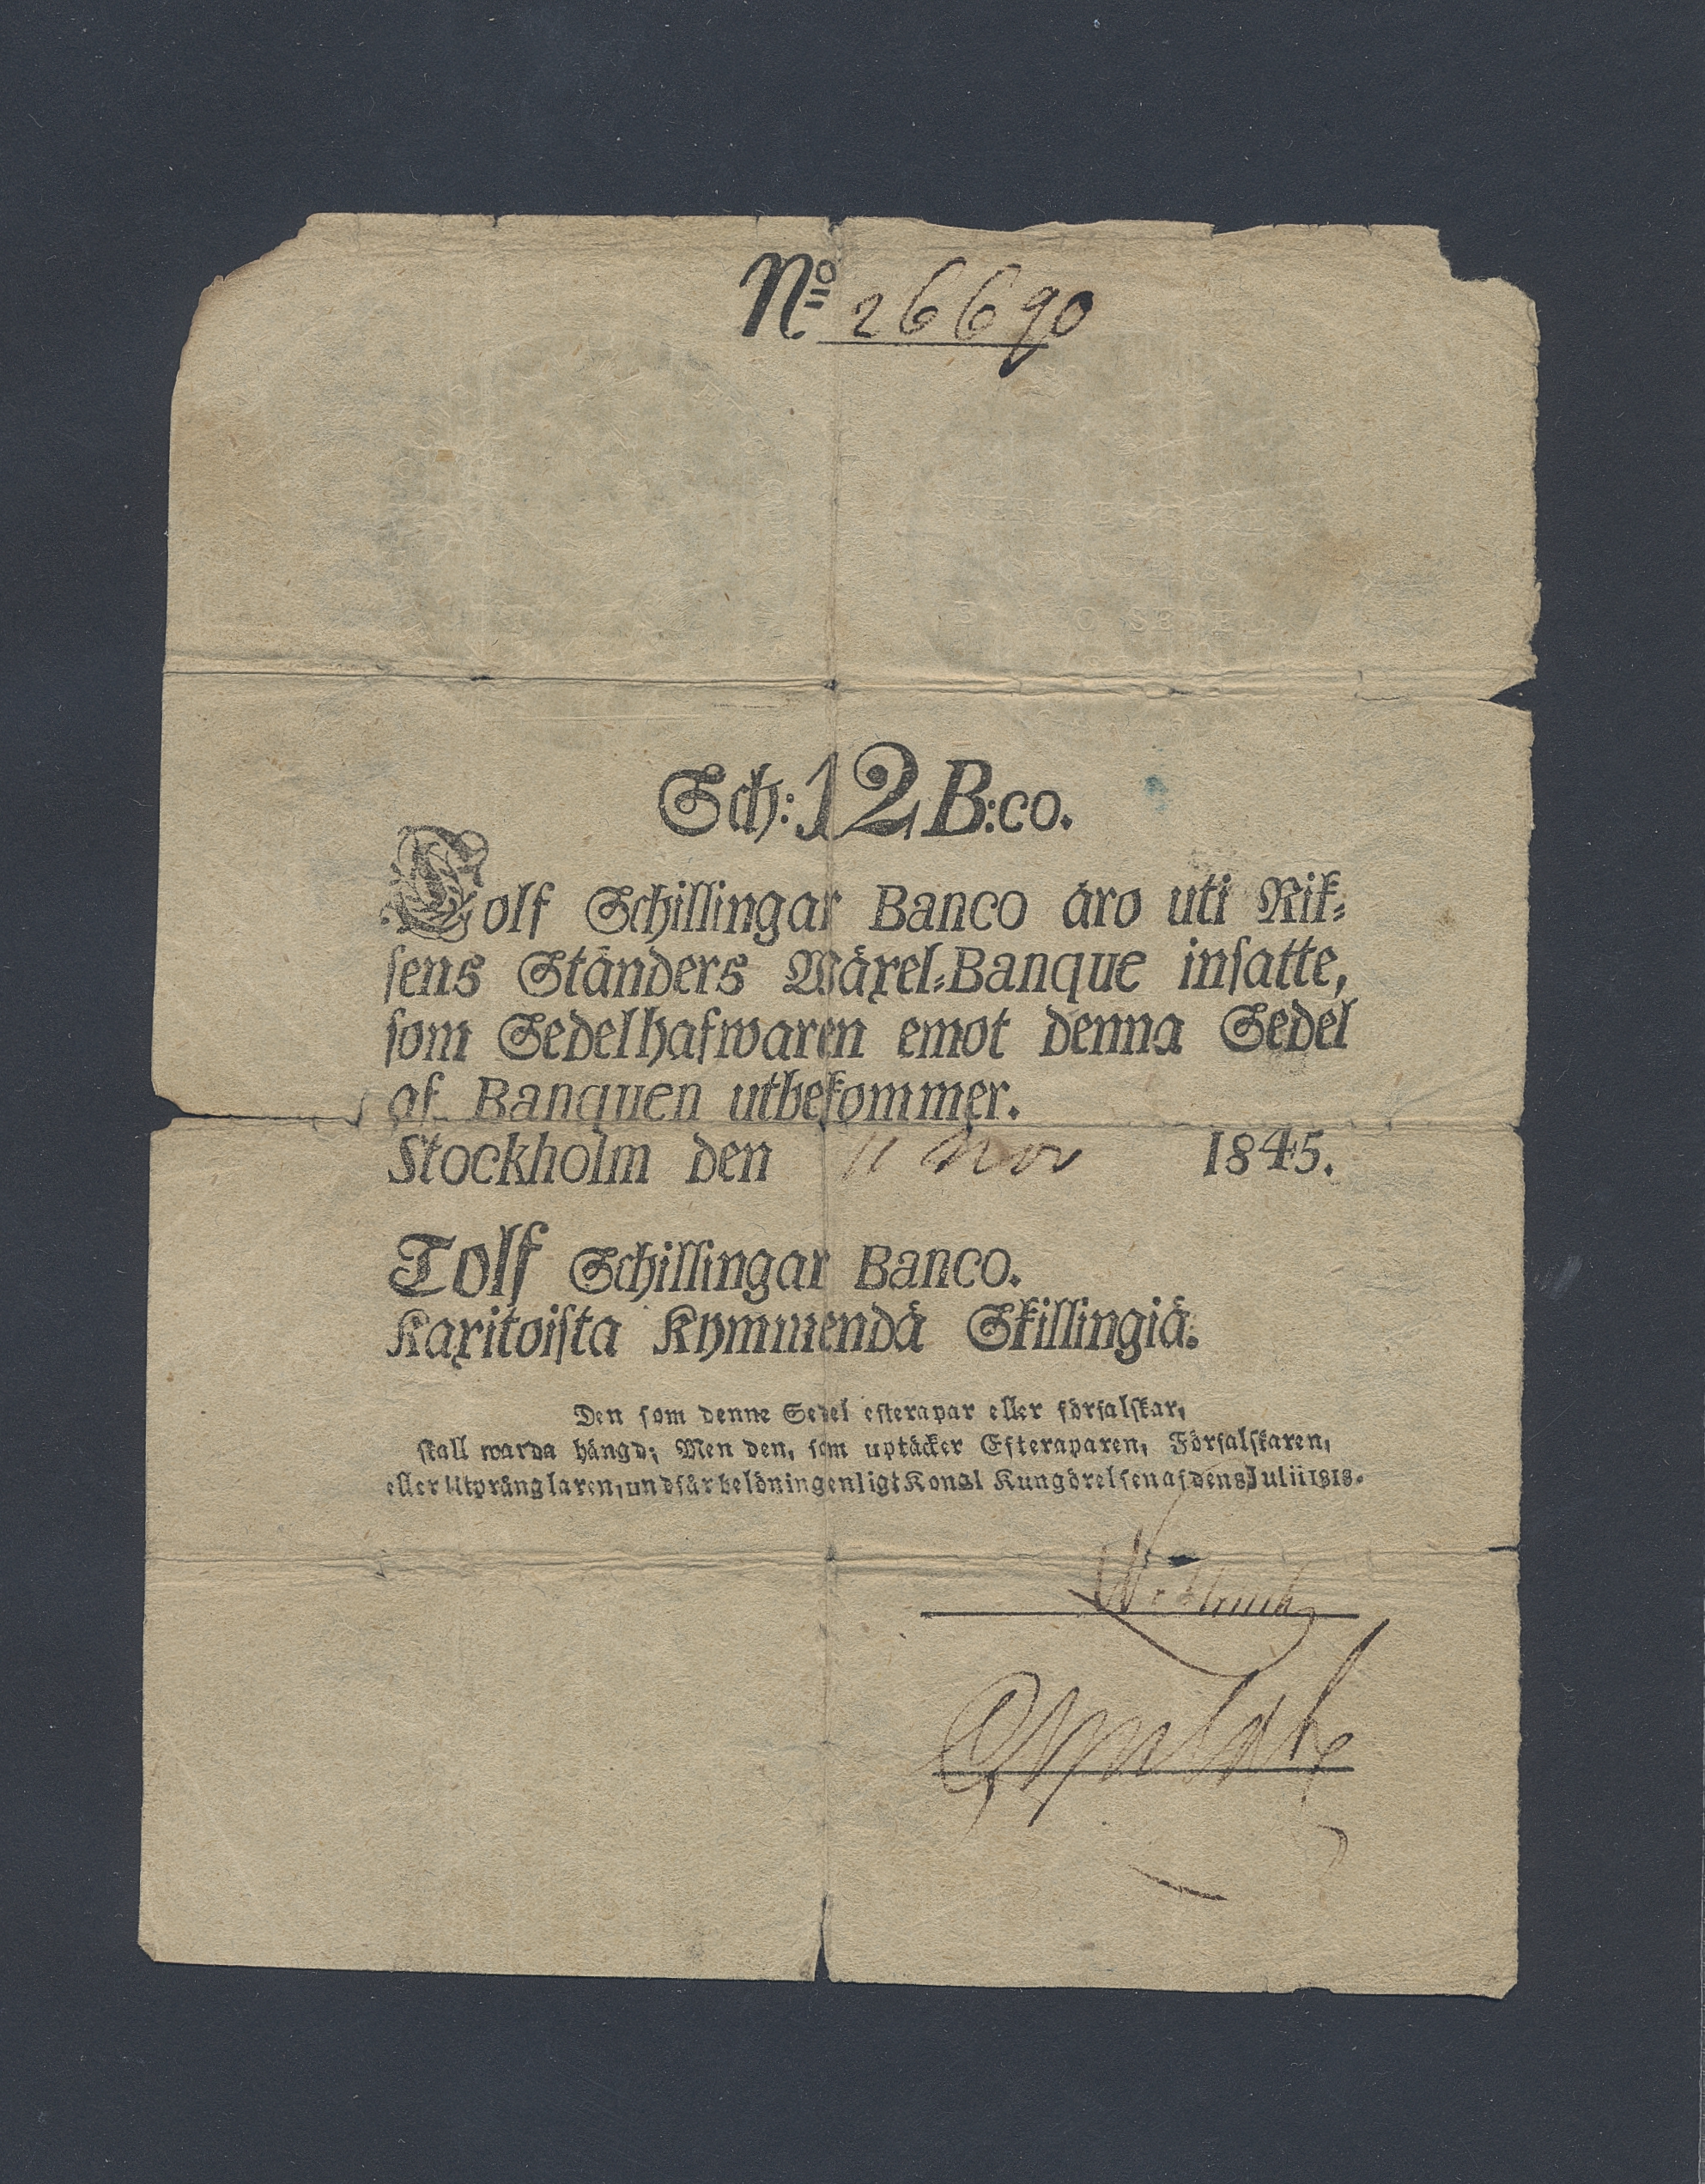 No 26690
Sch: 12 B:co.
Tolf Schillingar Banco äro uti Rik⸗
sens Ständers Wäxel⸗Banque insatte,
som Sedelhafwaren emot denna Sedel
af Banquen utbekommer.
Stockholm den 11 Nov 1845.
Tolf Schillingar Banco.
Kaxitoista Kymmendä Skillingiä.
Den som denne Sedel efterapar eller förfalskar,
skall warda hängd; Men den, som uptäcker Efteraparen, Förfalskaren,
eller Utprånglaren, undfår belöning enligt Kongl Kungörelsen af den 8 Julii 1818.